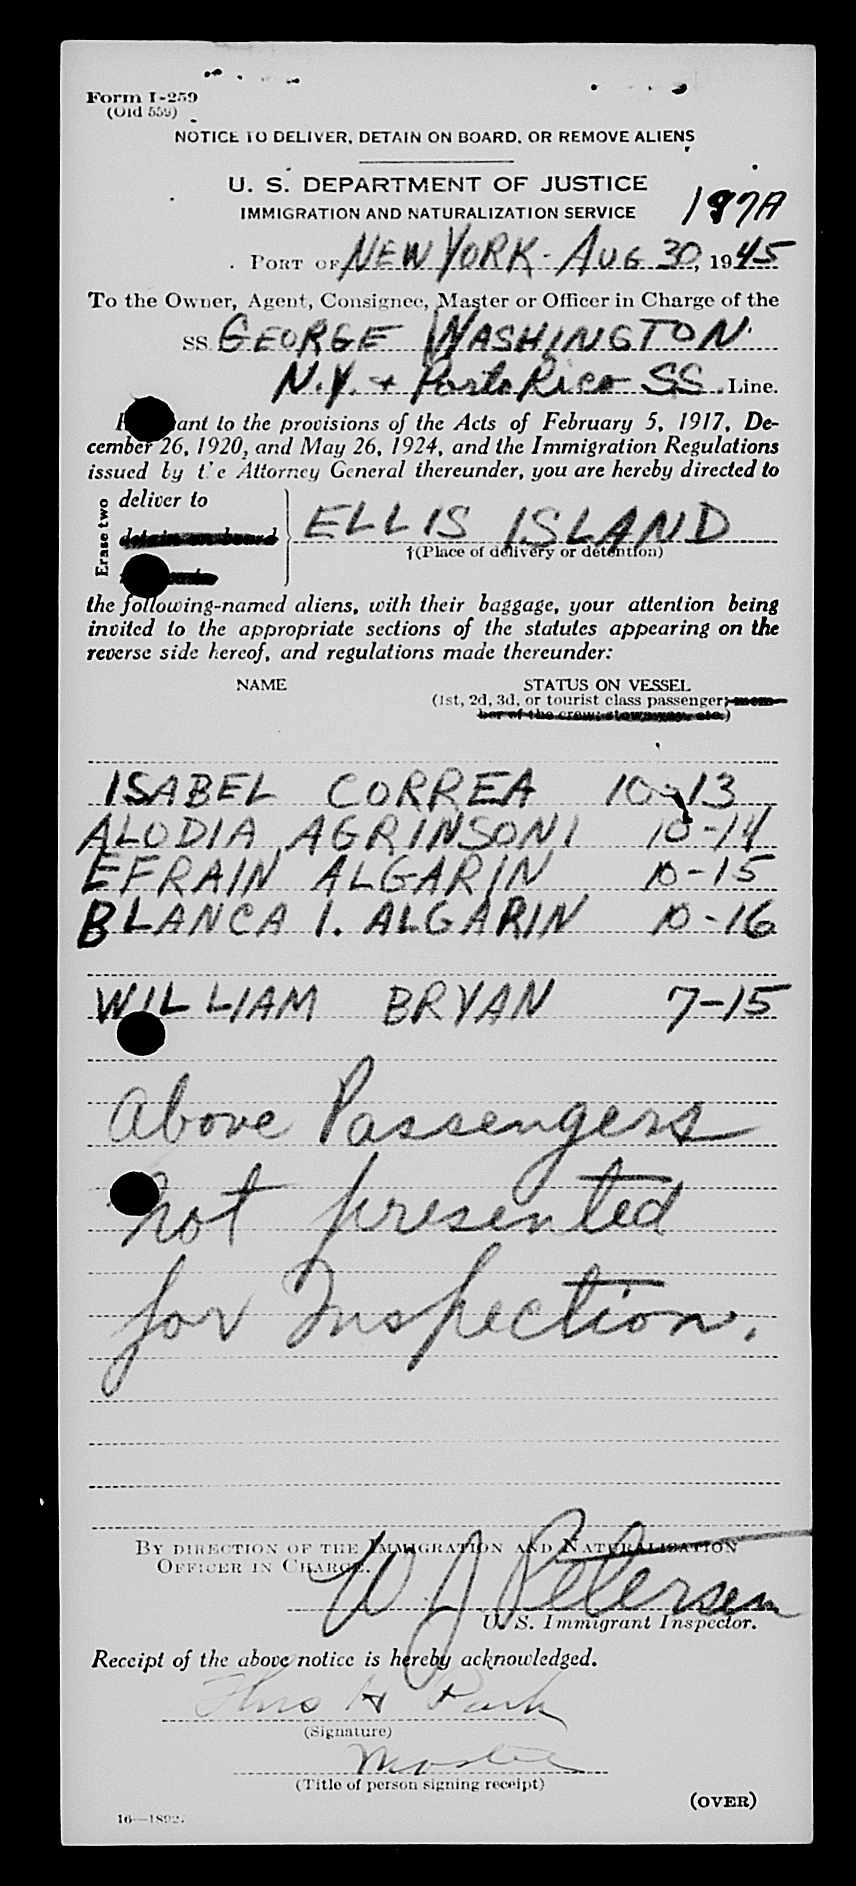 Form I-259
(Old 559)
NOTICE TO DELIVER, DETAIN ON BOARD, OR REMOVE ALIENS
U. S. DEPARTMENT OF JUSTICE
IMMIGRATION AND NATURALIZATION SERVICE
197A
PORT OF NEW YORK - AUG 30, 1945
To the Owner, Agent, Consignee, Master or Officer in Charge of the
SS GEORGE WASHINGTON
N.Y. + Porto Rico SS. Line.
ant to the provisions of the Acts of February 5, 1917, De-
cember 26, 1920, and May 26, 1924, and the Immigration Regulations
issued by the Attorney General thereunder, you are hereby directed to
Erase two
deliver to
detain on board
ELLIS ISLAND
†(Place of delivery or detention)
the following-named aliens, with their baggage, your attention being
invited to the appropriate sections of the statutes appearing on the
reverse side hereof, and regulations made thereunder:
NAME STATUS ON VESSEL
(1st, 2d, 3d, or tourist class passenger; mem-
ber of the crew; stowaway, etc.)
ISABEL CORREA 10-13
ALODIA AGRINSONI 10-14
EFRAIN ALGARIN 10-15
BLANCA I. ALGARIN 10-16
WILLIAM BRYAN 7-15
Above Passengers
not presented
for Inspection.
BY DIRECTION OF THE IMMIGRATION AND NATURALIZATION
OFFICER IN CHARGE.
W J Petersen
U. S. Immigrant Inspector.
Receipt of the above notice is hereby acknowledged.
Thos H Park
(Signature)
Master
(Title of person signing receipt)
(OVER)
16—1892